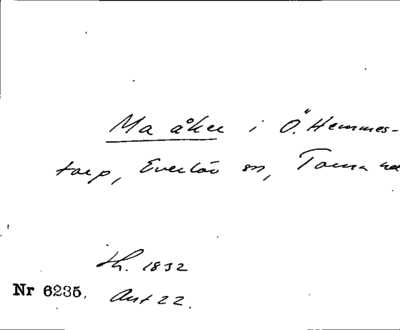 Ma åker i Ö. Hemmes-
torp, Everlöv sn, Torna
Lh. 1832
Nr 6235. Ant 22.